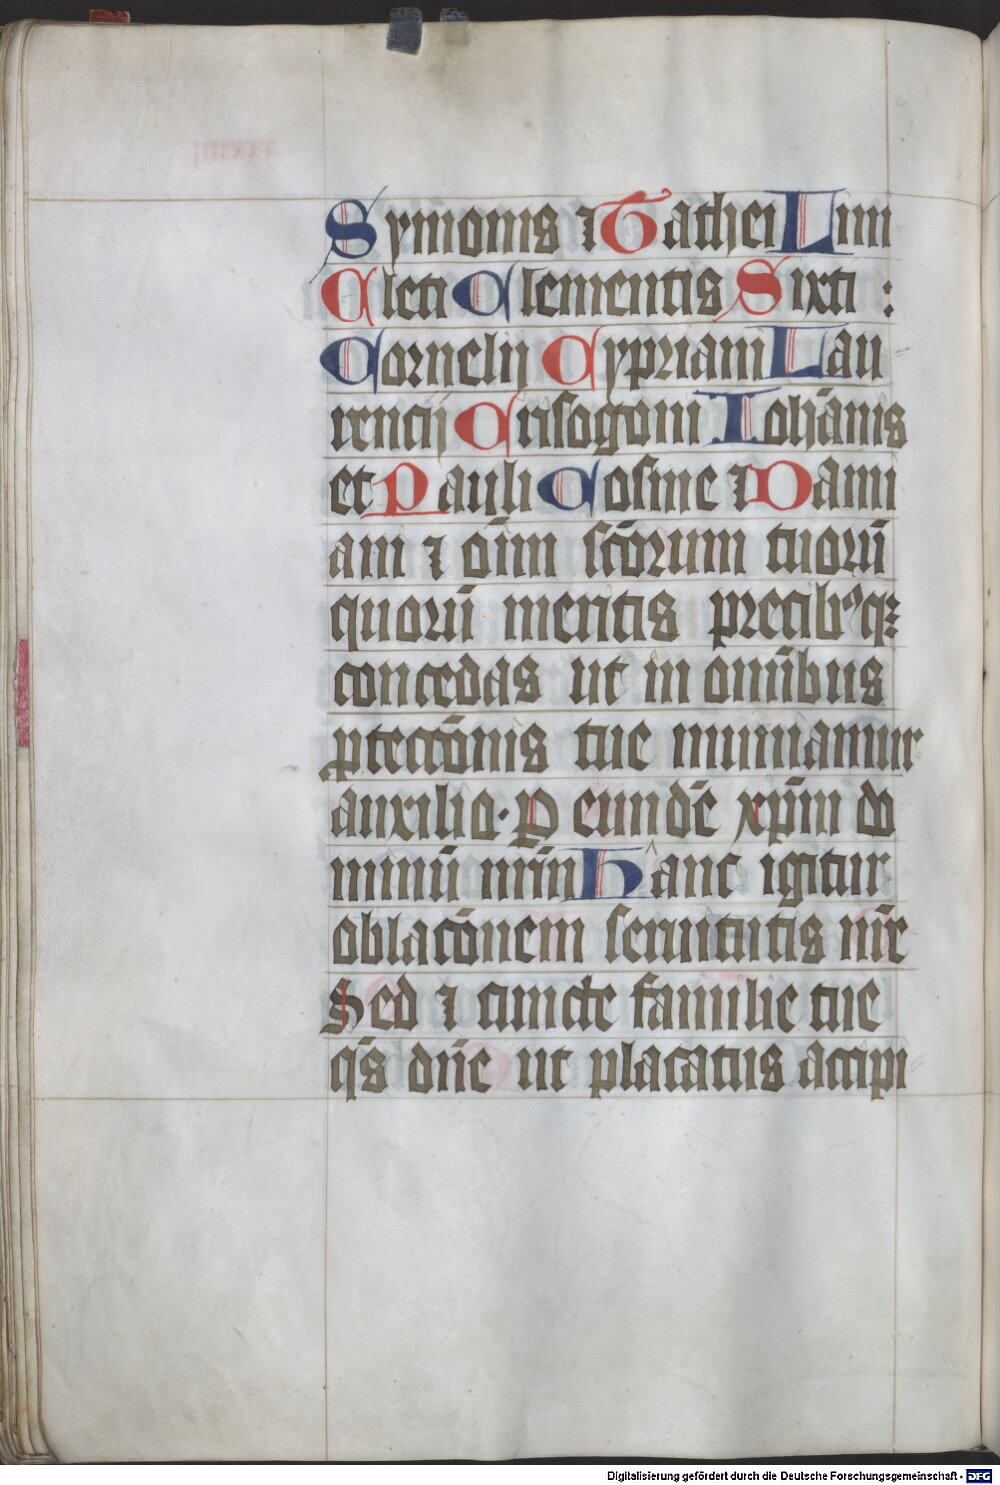 Symonis ⁊ Tathei Lini
Cleti Clementis Sixti :
Cornelij Cypriani Lau
rencij Crisogoni Ioh̄anis
et Pauli Cosme ⁊ Dami
ani ⁊ oīm sc̄orum tuorū
quorū meritis precibꝰqꝫ
concedas ut in omībus
ꝓtectōnis tue muniamur
auxilio · Ꝑ eundē xp̄m do
minū nr̄m Hanc igitur
oblacōnem seruitutis nr̄e
Sed ⁊ cuncte familie tue
qs̄ dn̄e ut placatus accipi
Digitalisierung gefördert durch die Deutsche Forschungsgemeinschaft - DFG